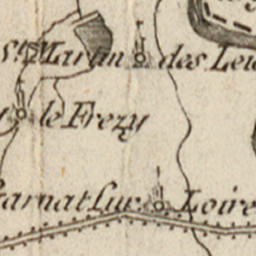 St. Martin des Leu
le Frezy
Garnat Sur Loire